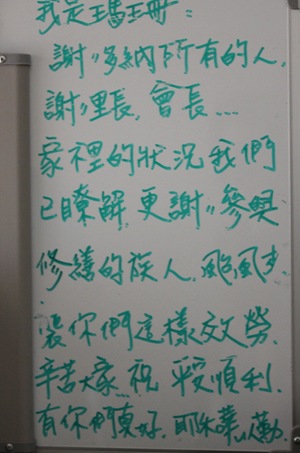 我是瑪玉珊:
謝〃多納下所有的人,
謝〃里長,會長....
家裡的狀況我們
已瞭解,更謝〃參與
修繕的族人,颱風走,
讓你們這樣效勞,
辛苦大家...祝 平安順利,
有你們真好,耶穌華以勒.